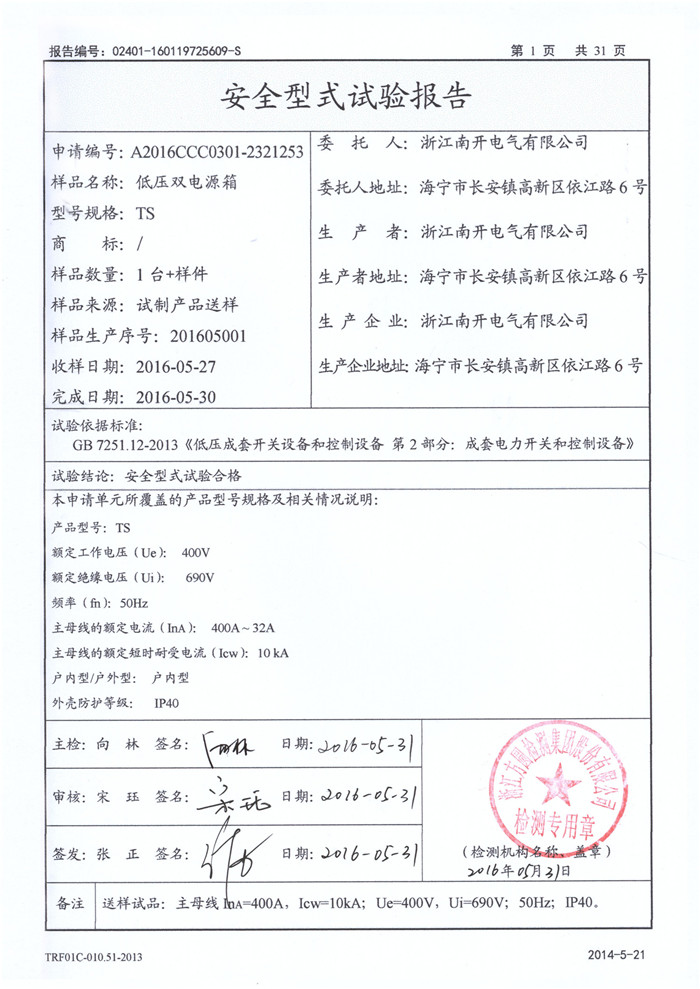 报告编号：02401-160119725609-S
第 1 页 共 31 页
安全型式试验报告
申请编号：A2016CCC0301-2321253
样品名称：低压双电源箱
型号规格：TS
商 标：/
样品数量：1 台+样件
样品来源：试制产品送样
样品生产序号：201605001
收样日期：2016-05-27
完成日期：2016-05-30
委 托 人：浙江南开电气有限公司
委托人地址：海宁市长安镇高新区依江路 6 号
生 产 者：浙江南开电气有限公司
生产者地址：海宁市长安镇高新区依江路 6 号
生 产 企 业：浙江南开电气有限公司
生产企业地址：海宁市长安镇高新区依江路 6 号
试验依据标准：
GB 7251.12-2013《低压成套开关设备和控制设备 第 2 部分：成套电力开关和控制设备》
试验结论：安全型式试验合格
本申请单元所覆盖的产品型号规格及相关情况说明：
产品型号：TS
额定工作电压（Ue）： 400V
额定绝缘电压（Ui）： 690V
频率（fn）：50Hz
主母线的额定电流（InA）： 400A～32A
主母线的额定短时耐受电流（Icw）：10 kA
户内型/户外型： 户内型
外壳防护等级： IP40
主检：向 林 签名：向林 日期：2016-05-31
审核：宋 珏 签名：宋珏 日期：2016-05-31
签发：张 正 签名： 日期：2016-05-31
浙江方圆检测集团股份有限公司
检测专用章
（检测机构名称、盖章）
2016年05月31日
备注 送样试品：主母线 InA=400A，Icw=10kA；Ue=400V，Ui=690V；50Hz；IP40。
TRF01C-010.51-2013
2014-5-21